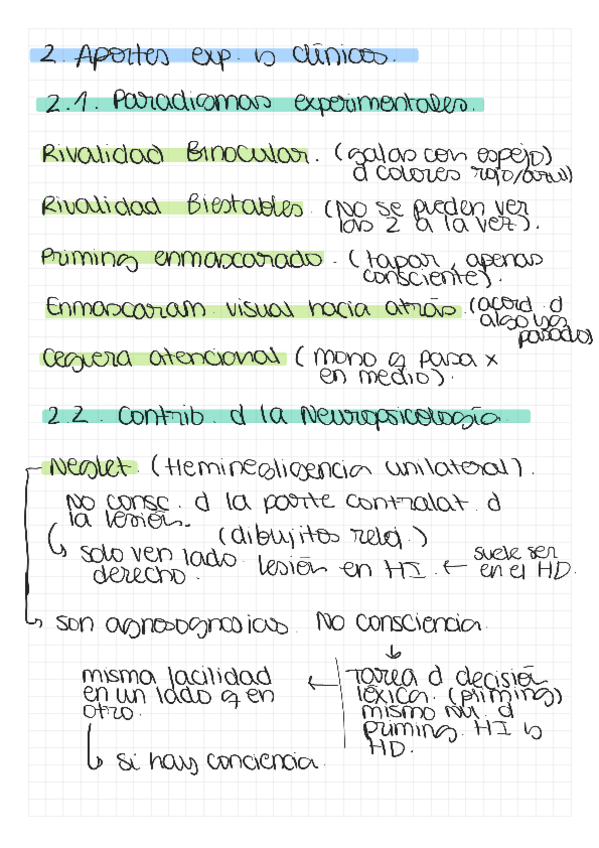 2. Aportes exp. y clínicos.
2.1. Paradigmas experimentales.
Rivalidad Binocular. (gafas con espejo)
d colores rojo/azul)
Rivalidad Biestables. (No se pueden ver
las 2 a la vez).
Priming enmascarado. (tapar, apenas
consciente).
Enmascaram. visual hacia atrás (acord. d
algo ya
pasado)
Ceguera atencional (mono q pasa x
en medio).
2.2. Contrib. d la Neuropsicología.
Neglet. (Heminegligencia unilateral).
No consc. d la parte contralat. d
la lesión.
(dibujitos reloj.)
solo ven lado
derecho.
lesión en HI. ← suele ser
en el HD.
son agnosognosias. No consciencia.
misma facilidad
en un lado q en
otro.
← Tarea d decisión
léxica. (priming)
mismo niv. d
priming. HI y
HD.
si hay conciencia.